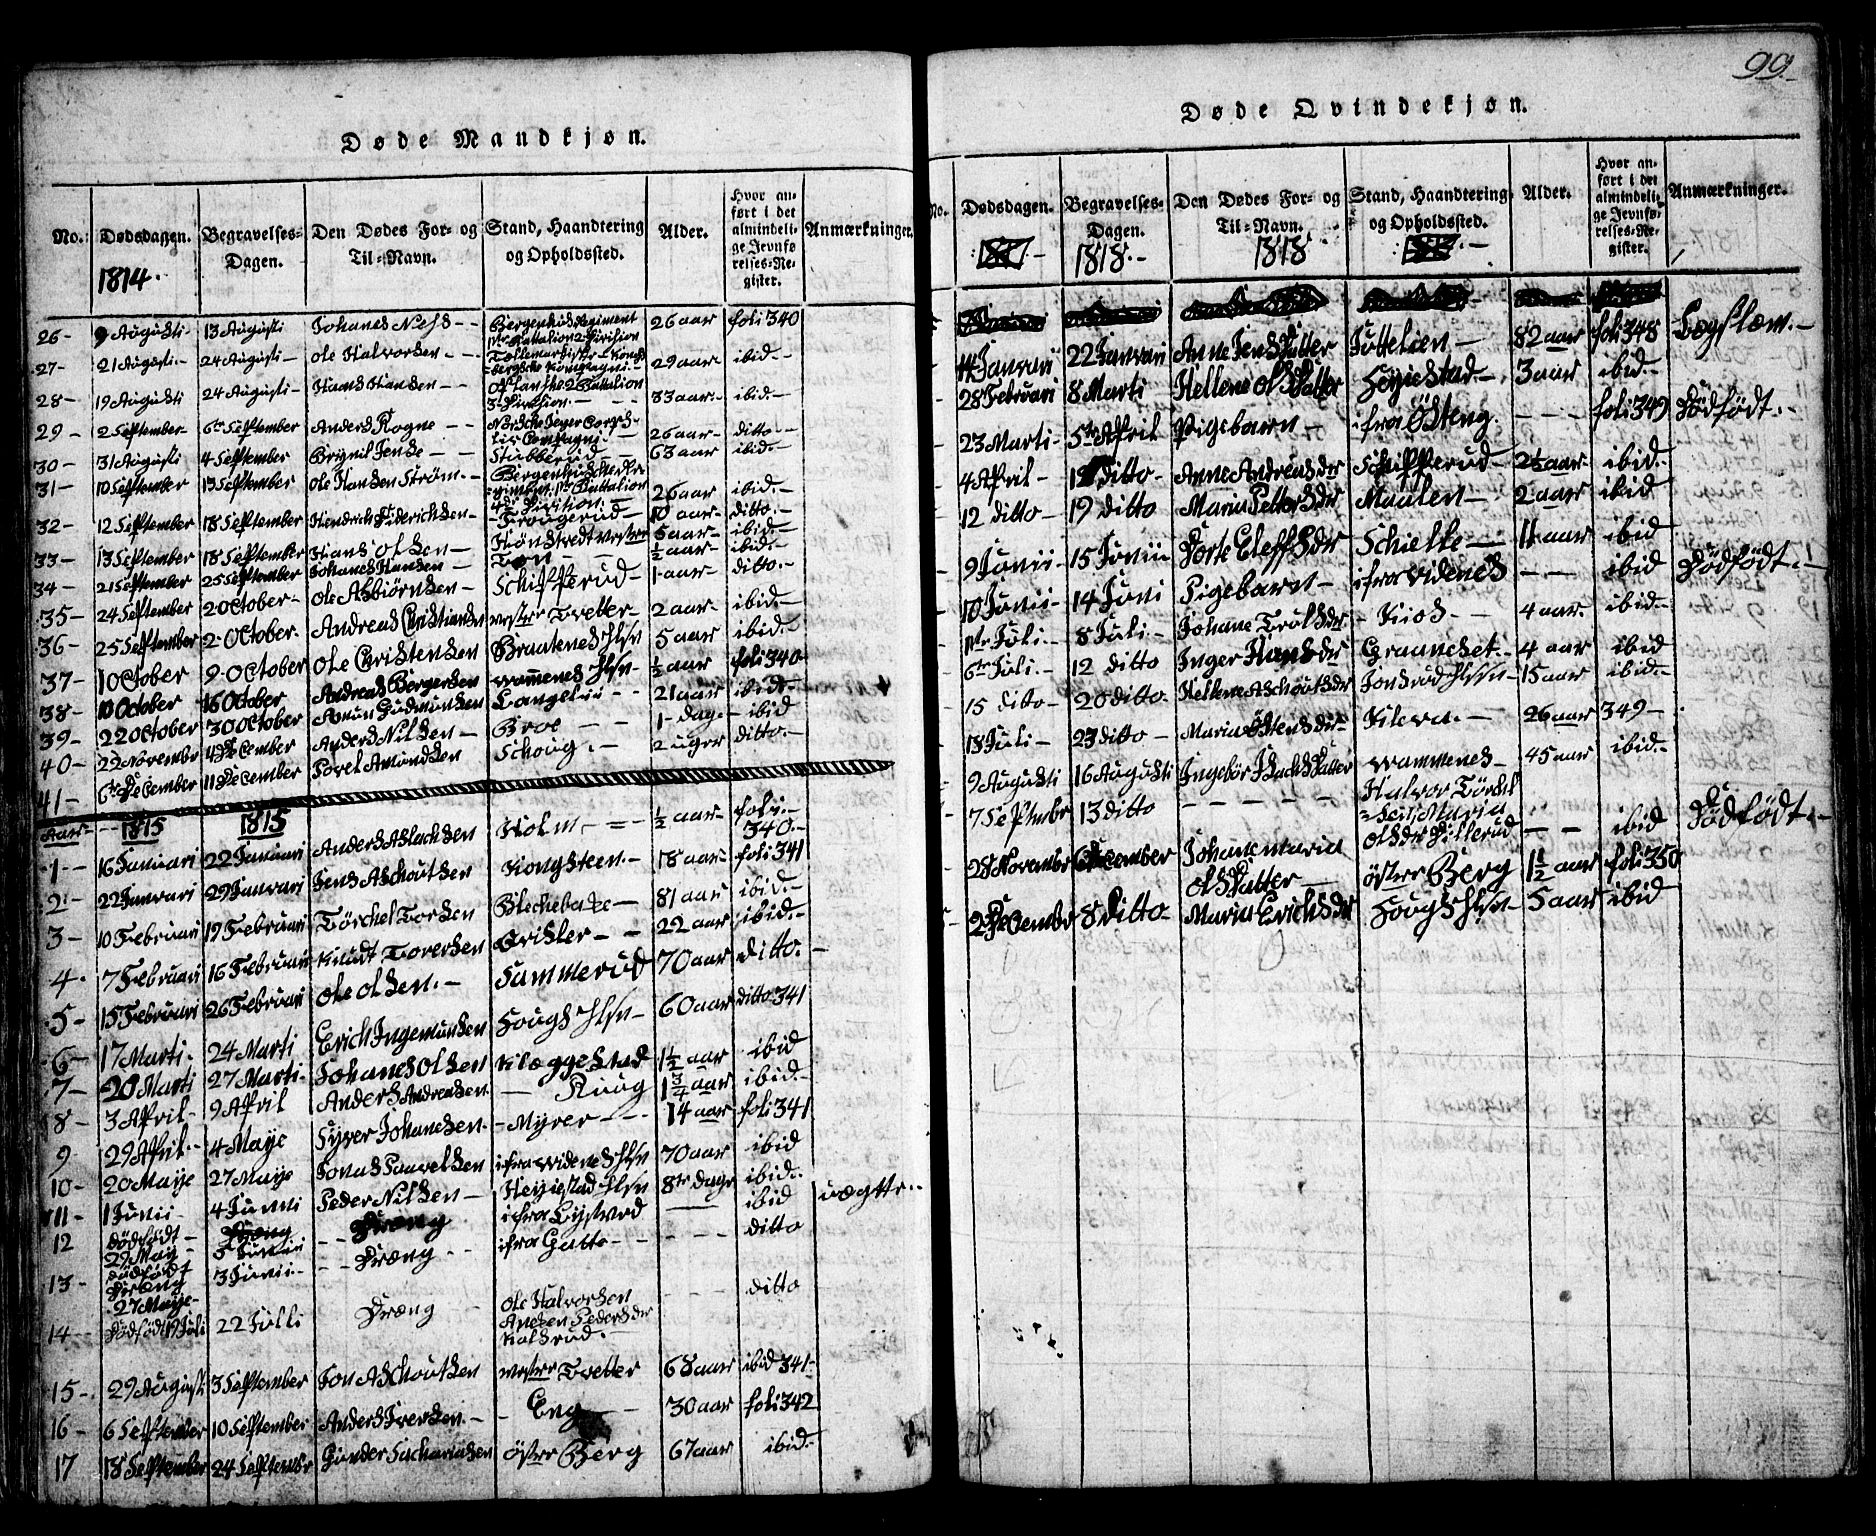 Døde Mandkjøn.
No.: Dødsdagen. Begravelses-Dagen. Den Dødes For- og Til-Navn. Stand, Haandtering og Opholdssted. Alder. Hvor anført i det almindelige Jevnførelses-Register. Anmærkninger.
1814.
26- 9 Augusti 13 Augusti Johanes Ness -- Bergenhus Regiment 1ste Battalion 2 Division 26 aar foli 340
27- 21 Augusti- 24 Augusti- Ole Halvorsen -- 29 aar ibid.-
28- 19 Augusti 24 Augusti- Hans Hansen -- 2 Battalion 3 Division.- 33 aar- ibid.-
29- 2 September- 6te September Anders Rogne -- 26 aar- ditto-
30- 31 Augusti 4 September Brynil Jense - Stubberud- 63 aar- ibid.-
31- 10 September 13 September Ole Hansen Strøm - 1ste Battalion 4de Division: 26 aar ibid.-
32- 12 September 18 September Hendrich Diderichsen- Frougerud- 10 aar- ditto.-
33- 13 September 18 September Hans Olsen - 5 aar- ibid-
34- 21 September 25 September Johanes Hansen - ½ aar- ibid.-
35- 24 September 2 October- Ole Asbiörnsen- Schipperud- 1 aar- ditto.
36- 25 September 2 October- Andreas Christiansen vester Tveter- 2 aar- ibid.-
37- 1 October 9 October Ole Christensen Braatenes Hsn 5 aar ibid.
38- 10 October 16 October Andreas Bergersen Wammenes Hsn- ½ aar foli 340
39- 22 October 30 October Amun Gudmunsen Langelii -- 21 aar ibid.-
40- 29 November 4 December Anders Nilsen- Broe - 1- dag- ibid
41- 6te December 11 December Torel Amundsen Schoug.- 2 uger ditto.-
Aar- 1815 1815
1- 16 Januari 22 Januari Anders Aslachsen Holm,- ½ aar- foli.- 340.-
2- 22 Januari 29 Januari Jens Aschoutsen Kongsteen.- 18 aar- foli 341
3- 10 Februari 19 Februari Törchel Torsen Blechebake- 81 aar ibid.-
4. 7 Februari 16 Februari Knudt Toversen Grisler - 22 aar ibid.-
5- 15 Februari 26 Februari Ole Olsen.- Sammerud 70 aar ditto.-
6- 17 Marti- 24 Marti Erich Ingemunsen Hougs Hsn- 60 aar ditto 341
7- 20 Marti 27 Marti- Johanes Olsen Kloeggestad 1½ aar ibid
8- 3 April- 9 April Anders Andreasen - Ruug 1¾ aar ibid.-
9 29 April- 4 Maye Syver Johanesen.- Myrer -- 14 aar foli 341
10- 20 Maye 27 Maye Jonas Paavelsen ifra Vidnes Hsn 70 aar ibid
11- 1 Junii- 4 Junii Peder Nilsen- Heyiestad Hsn 8te dage ibid.
12 Dödfödt- 29 May- 5 Junii -- Dræng ifra Lysved ibid uægte.-
13- Dödfödt Dræng 27 Maye- 3 Junii- -- Dræng -- ifra Gatte- ditto
14- Dödfödt 19 Juli 22 Julli Dræng Ole Halvorsen Anesen Pedersdr Kolsrud.- --- ditto
15- 29 Augusti 3 September Jon Aschoutsen vester Tveter 68 aar ibid 341-
16- 6 September 10 September Anders Iversen.- Eng - 30 aar foli 342
17 18 September 24 September Gunder Sachariasen öster Berg 67 aar ibid.-
99.
Døde Qvindekjøn.
No. Dødsdagen. Begravelses-Dagen. Den Dødes For- og Til-Navn. Stand, Haandtering og Opholdssted. Alder. Hvor anført i det almindelige Jevnførelses-Register. Anmærkninger.
1818.- 1818
14 Januarii 22 Januari Anne Jensdatter Juttelien- 82 aar foli 348
28 Februari 8 Marti Hellene Olsdatter Heyiestad- 3 aar ibid.-
23 Marti- 5te April Pigebarn- ifra Östeng. --- foli 349 Dödfödt.-
4 April- 12 ditto- Anne Andreasdr Schipperud- 2½ aar- ibid.
12 ditto- 19 ditto Maria Pettersdr Maalen- 2 aar ibid
9 Junii- 15 Junii Dorte Eleffsdr Schielle- 11 aar ibid
10 Junii- 14 Juni Pigebarn- ifra Vidnes -- ibid Dödfödt.-
1ste Juli- 8 Juli- Johane Trulsdr - Kios - 4 aar. ibid.-
6te Juli- 12 ditto Inger Hansdr Graaneset.- 4 aar ibid
15 ditto- 20 ditto- Hellene Aschoutsdr Jonsrud Hsn- 15 aar ibid.-
18 Juli- 23 ditto- Maria Östensdr- Kileva.- 26 aar 349-
9 Augusti 16 Augusti Ingebör Isachsdatter Wammenes- 45 aar ibid.-
7 September 13 ditto ---- Halvor Törchelsen, Maria Olsdr Pillerud -- ibid Dödfödt.-
28 November 6 December Johanemaria Olsdatter- öster Berg 1½ aar foli 350
2 December 8 ditto- Maria Erichsdr Hougs Hsn- 5 aar ibid